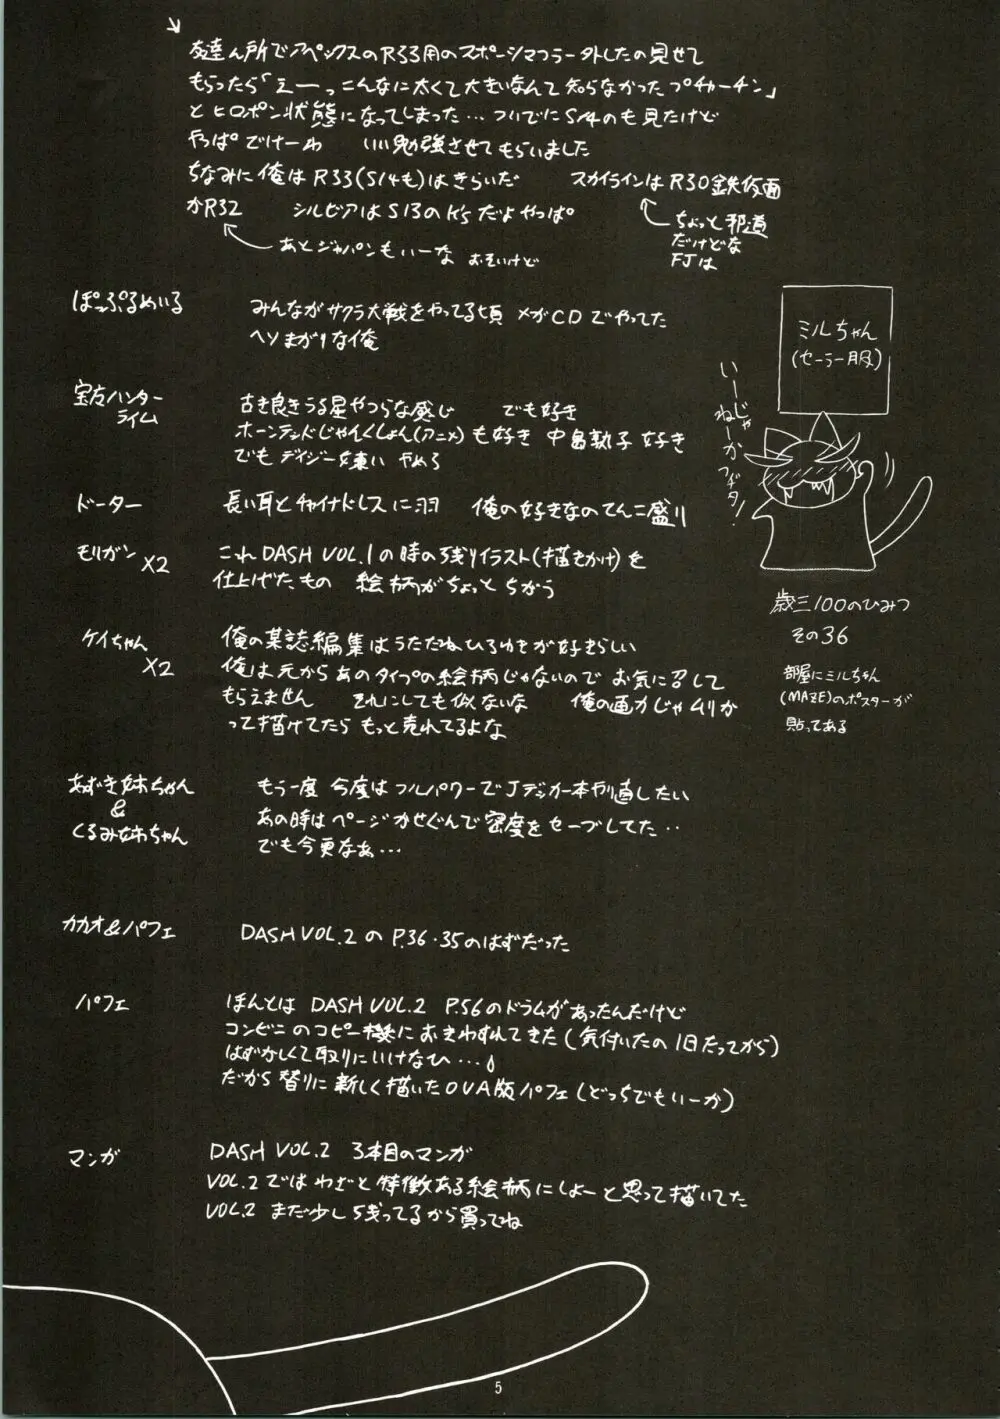 友達ん所でアペックスのR33用のスポーツマフラー外したの見せて
もらったら「えーっこんなに太くて大きいなんて知らなかったプチカーチン」
とヒロポン状態になってしまった…ついでにS14のも見たけど
やっぱでけーわ いい勉強させてもらいました
ちなみに俺はR33(S14も)はきらいだ スカイラインはR30鉄仮面
かR32 シルビアはS13のK'sだよやっぱ
ちょっと邪道
だけどな
FJは
あとジャパンもいーな おそいけど
ぽっぷるめいる
みんながサクラ大戦をやってる頃 メガCDでやってた
ヘソまがりな俺
ハンター
ライム
古き良きうる星やつらな感じ でも好き
ホーンテッドじゃんくしょん(アニメ)も好き 中島敦子 好き
でもデイジー嫌い やめろ
ドーター
長い耳とチャイナドレスに羽 俺の好きなのてんこ盛り
モリガン
X2
これDASH VOL.1の時の残りイラスト(描きかけ)を
仕上げたもの 絵柄がちょっとちがう
ケイちゃん
X2
俺の某誌編集はうたたねひろゆきが好きらしい
俺は元からあのタイプの絵柄じゃないので お気に召して
もらえません それにしても似ないな 俺の画力じゃムリか
って描けてたら もっと売れてるよな
あずき姉ちゃん
&
くるみ姉ちゃん
もう一度 今度はフルパワーでJデッカー本列直したい
あの時はページかせぐんで密度をセーブしてた‥
でも今更なあ…
カカオ&パフェ
DASH VOL.2の P.36・35のはずだった
パフェ
ほんとは DASH VOL.2 P.56のドラムがあったんだけど
コンビニのコピー機におきわすれてきた(気付いたの1日たってから)
はずかしくて取りにいけなひ…
だから替りに新しく描いたOVA版パフェ(どっちでもいーか)
マンガ
DASH VOL.2 3本目のマンガ
VOL.2ではわざと特徴ある絵柄にしよーと思って描いてた
VOL.2 まだ少し残ってるから買ってね
ミルちゃん
(セーラー服)
いーじゃ
ねーか
ブヂタ!
歳三100のひみつ
その36
部屋にミルちゃん
(MAZE)のポスターが
貼ってある
5